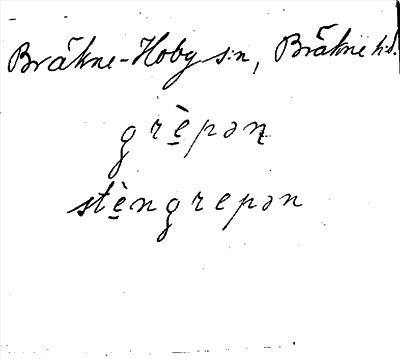 Bräkne-Hoby s:n, Bräkne hd.
grè̱pən
stè̱ngrepən